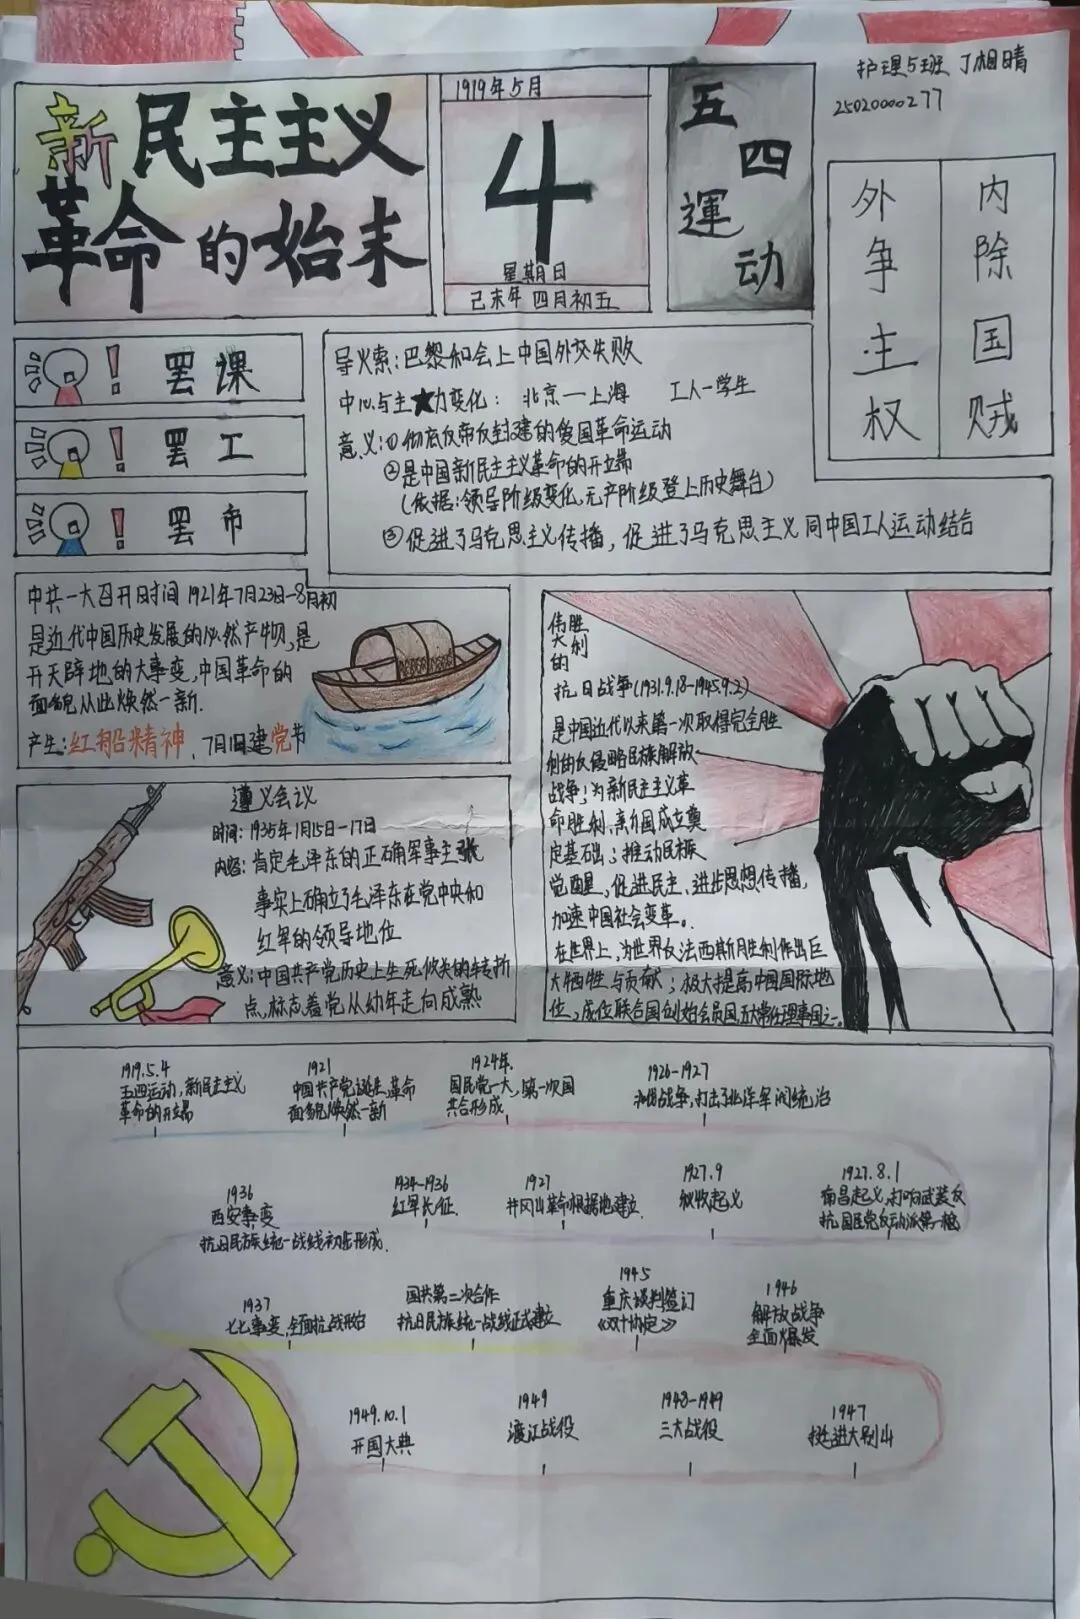 护理5班 丁相晴
25020000277
新民主主义
革命的始末
1919年5月
4
星期日
己未年 四月初五
五四運动
外争主权
内除国贼
罢课
罢工
罢市
导火索:巴黎和会上中国外交失败
中心与主★力变化: 北京—上海 工人—学生
意义:①彻底反帝反封建的爱国革命运动
②是中国新民主主义革命的开立端
(依据:领导阶级变化,无产阶级登上历史舞台)
③促进了马克思主义传播,促进了马克思主义同中国工人运动结合
中共一大召开时间1921年7月23日-8月初
是近代中国历史发展的必然产物,是
开天辟地的大事变,中国革命的
面貌从此焕然一新.
产生:红船精神,7月1日建党节
遵义会议
时间:1935年1月15日-17日
内容:肯定毛泽东的正确军事主张
事实上确立了毛泽东在党中央和
红军的领导地位
意义:中国共产党历史上生死攸关的转折
点,标志着党从幼年走向成熟
伟大的胜利
抗日战争(1931.9.18-1945.9.2)
是中国近代以来第一次取得完全胜
利的反侵略民族解放
战争;为新民主主义革
命胜利,新国成立奠
定基础;推动民族
觉醒,促进民主、进步思想传播,
加速中国社会变革。
在世界上,为世界反法西斯胜利作出巨
大牺牲与贡献;极大提高中国国际地
位,成位联合国创始会员国,五大常任理事国之一.
1919.5.4
五四运动,新民主主义
革命的开立端
1921
中国共产党诞生,革命
面貌焕然一新
1924年.
国民党一大,第一次国
共合形成
1926-1927
战争,打击了北洋军阀统治
1927.8.1
南昌起义,打响武装反
抗国民党反动派第一枪
1927.9
秋收起义
1927
井冈山革命根据地建立.
1934-1936
红军长征.
1936
西安事变
抗日民族统一战线初步形成.
1937
七七事变,全面抗战开始
国共第二次合作
抗日民族统一战线正式建立
1945
重庆谈判签订
《双十协定》
1946
解放战争
全面爆发
1947
挺进大别山
1948-1949
三大战役
1949
渡江战役
1949.10.1
开国大典